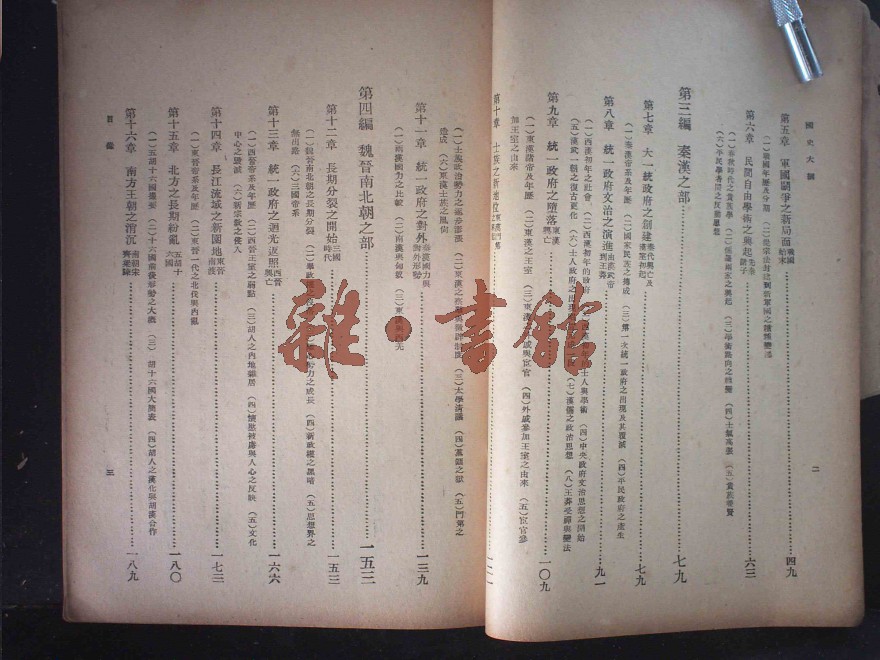 國史大綱
二
第五章 軍國鬬爭之新局面 戰國始末……四九
（一）戰國年歷及分期
第六章 民間自由學術之興起 先秦諸子……六三
（一）春秋時代之貴族學 （二）儒墨兩家之興起 （三）學術路向之轉變 （四）士氣高漲 （五）貴族養賢
（六）平民學者間之反動思想
第三編 秦漢之部……七九
第七章 大一統政府之創建 秦代興亡及漢室初起……七九
（一）秦漢帝系及年歷 （二）國家民族之摶成 （三）第一次統一政府之出現及其覆滅 （四）平民政府之產生
第八章 統一政府文治之演進 由漢武帝到王莽……九一
（一）西漢初年之社會 （二）西漢初年的政府 士人與學術 （四）中央政府文治思想之開始
（五）漢武一朝之復古更化 （六）士人政府之出現 （七）漢儒之政治思想 （八）王莽受禪與變法
第九章 統一政府之墮落 東漢興亡……一〇九
（一）東漢諸帝及年歷 （二）東漢之王室 戚與宦官 （四）外戚參加王室之由來 （五）宦官參
加王室之由來
第十章 士族之新地位……一二一
（一）士族政治勢力之逐步膨漲 （三）太學清議 （四）黨錮之獄 （五）門第之
造成 （六）東漢士族之風尚
第十一章 統一政府之對外 秦漢國力與對外形勢……一三九
（一）兩漢國力之比較 （二）兩漢與匈奴 （三）東漢與西羌
第四編 魏晉南北朝之部……一五三
第十二章 長期分裂之開始 三國時代……一五三
（一）魏晉南北朝之長期分裂 勢力之成長 （四）新政權之黑暗 （五）思想界之
無出路 （六）三國帝系
第十三章 統一政府之迴光返照 西晉興亡……一六六
（一）西晉帝系及年歷 （二）西晉王室之弱點 （三）胡人之內地雜居 （四）懷愍被虜與人心之反映 （五）文化
中心之毀滅 （六）新宗教之侵入
第十四章 長江流域之新園地 東晉南渡……一七三
（一）東晉帝系及年歷 （二）東晉一代之北伐與內亂
第十五章 北方之長期紛亂 五胡十六國……一八〇
（一）五胡十六國 （二）十六國前後形勢之大概 （三）胡十六國大簡表 （四）胡人之漢化與胡漢合作
第十六章 南方王朝之消沉 南朝宋齊梁陳……一八九
目錄
三
雜·書館